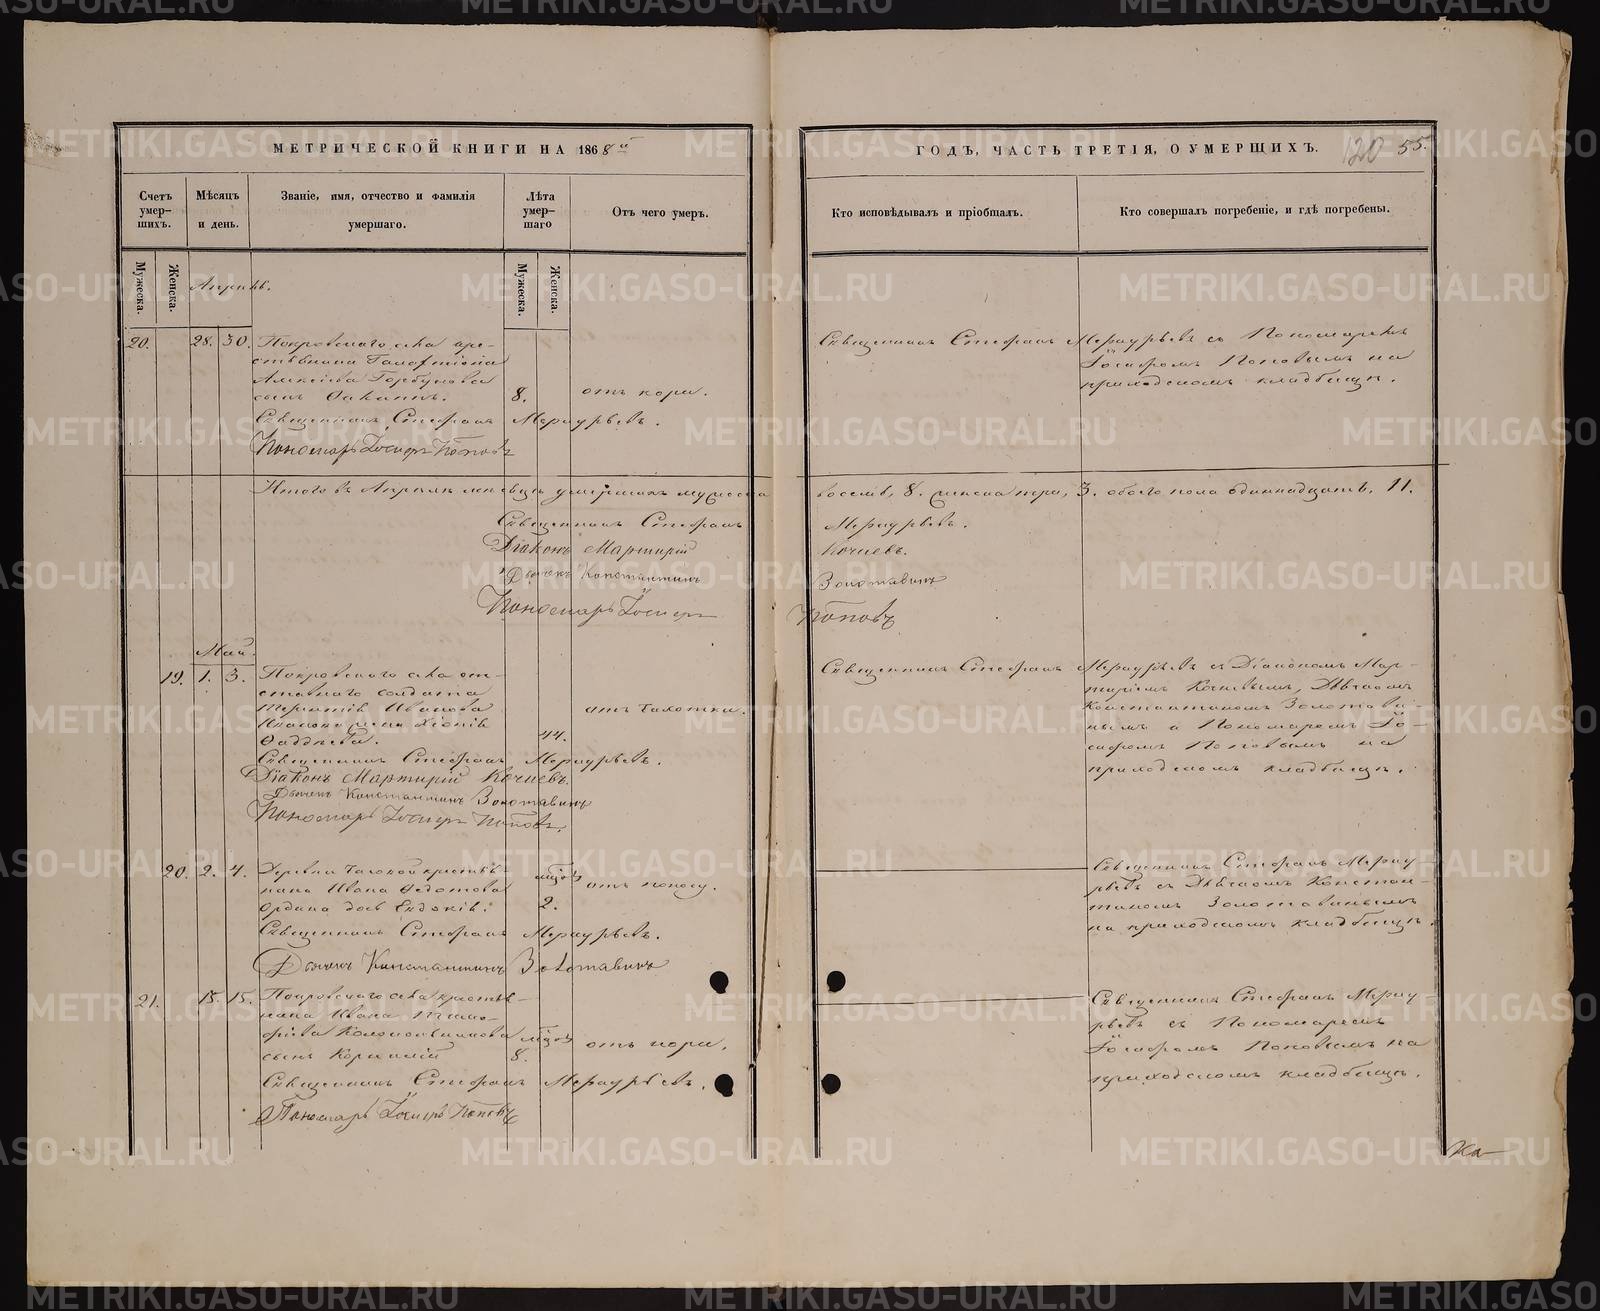 МЕТРИЧЕСКОЙ КНИГИ НА 1868й
ГОДЪ, ЧАСТЬ ТРЕТІЯ, О УМЕРШИХЪ.
120 55.
Счетъ умер-
шихъ.
Мѣсяцъ
и день.
Званіе, имя, отчество и фамилія
умершаго.
Лѣта
умер-
шаго
Отъ чего умеръ.
Кто исповѣдывалъ и пріобщалъ.
Кто совершалъ погребеніе, и гдѣ погребены.
Мужеска.
Женска.
Мужеска.
Женска.
Апрѣль.
20. 28. 30. Покровскаго села кре-
стьянина
Алексѣева Горбунова
сынъ
8. отъ кори.
Священникъ Стефанъ Меркурьевъ.
Пономарь Іосифъ Поповъ
Священникъ Стефанъ Меркурьевъ съ Пономаремъ
Іосифомъ Поповымъ на
приходскомъ кладбищѣ.
Итого въ Апрѣлѣ мѣсяцѣ умершихъ мужеска
восемь, 8. женска три, 3. обоего пола одиннадцать, 11.
Священникъ Стефанъ Меркурьевъ.
Діаконъ Мартирій Кочневъ.
Дьячекъ Константинъ Золотавинъ
Пономарь Іосифъ Поповъ
Май.
19. 1. 3. Покровскаго села от-
ставнаго солдата
Терентія Иванова
жена Хіонія
Фаддѣева.
44.
отъ чахотки.
Священникъ Стефанъ Меркурьевъ.
Діаконъ Мартирій Кочневъ.
Дьячекъ Константинъ Золотавинъ
Пономарь Іосифъ Поповъ.
Священникъ Стефанъ Меркурьевъ съ Діакономъ Мар-
тиріемъ Кочневымъ, Дьячкомъ
Константиномъ Золотави-
нымъ и Пономаремъ Іо-
сифомъ Поповымъ на
приходскомъ кладбищѣ.
20. 2. 4. Деревни крестья-
нина Ивана Федотова
дочь Евдокія.
мѣсяц
2.
отъ поносу.
Священникъ Стефанъ Меркурьевъ.
Дьячекъ Константинъ Золотавинъ
Священникъ Стефанъ Мерку-
рьевъ съ Дьячкомъ Констан-
тиномъ Золотавинымъ
на приходскомъ кладбищѣ.
21. 15. 15. Покровскаго села крестья-
нина Ивана Тимо-
фѣева Колокольникова
сынъ Корнилій
мѣсяц
8.
отъ кори.
Священникъ Стефанъ Меркурьевъ.
Пономарь Іосифъ Поповъ
Священникъ Стефанъ Мерку-
рьевъ съ Пономаремъ
Іосифомъ Поповымъ на
приходскомъ кладбищѣ.
Ка
METRIKI.GASO-URAL.RU